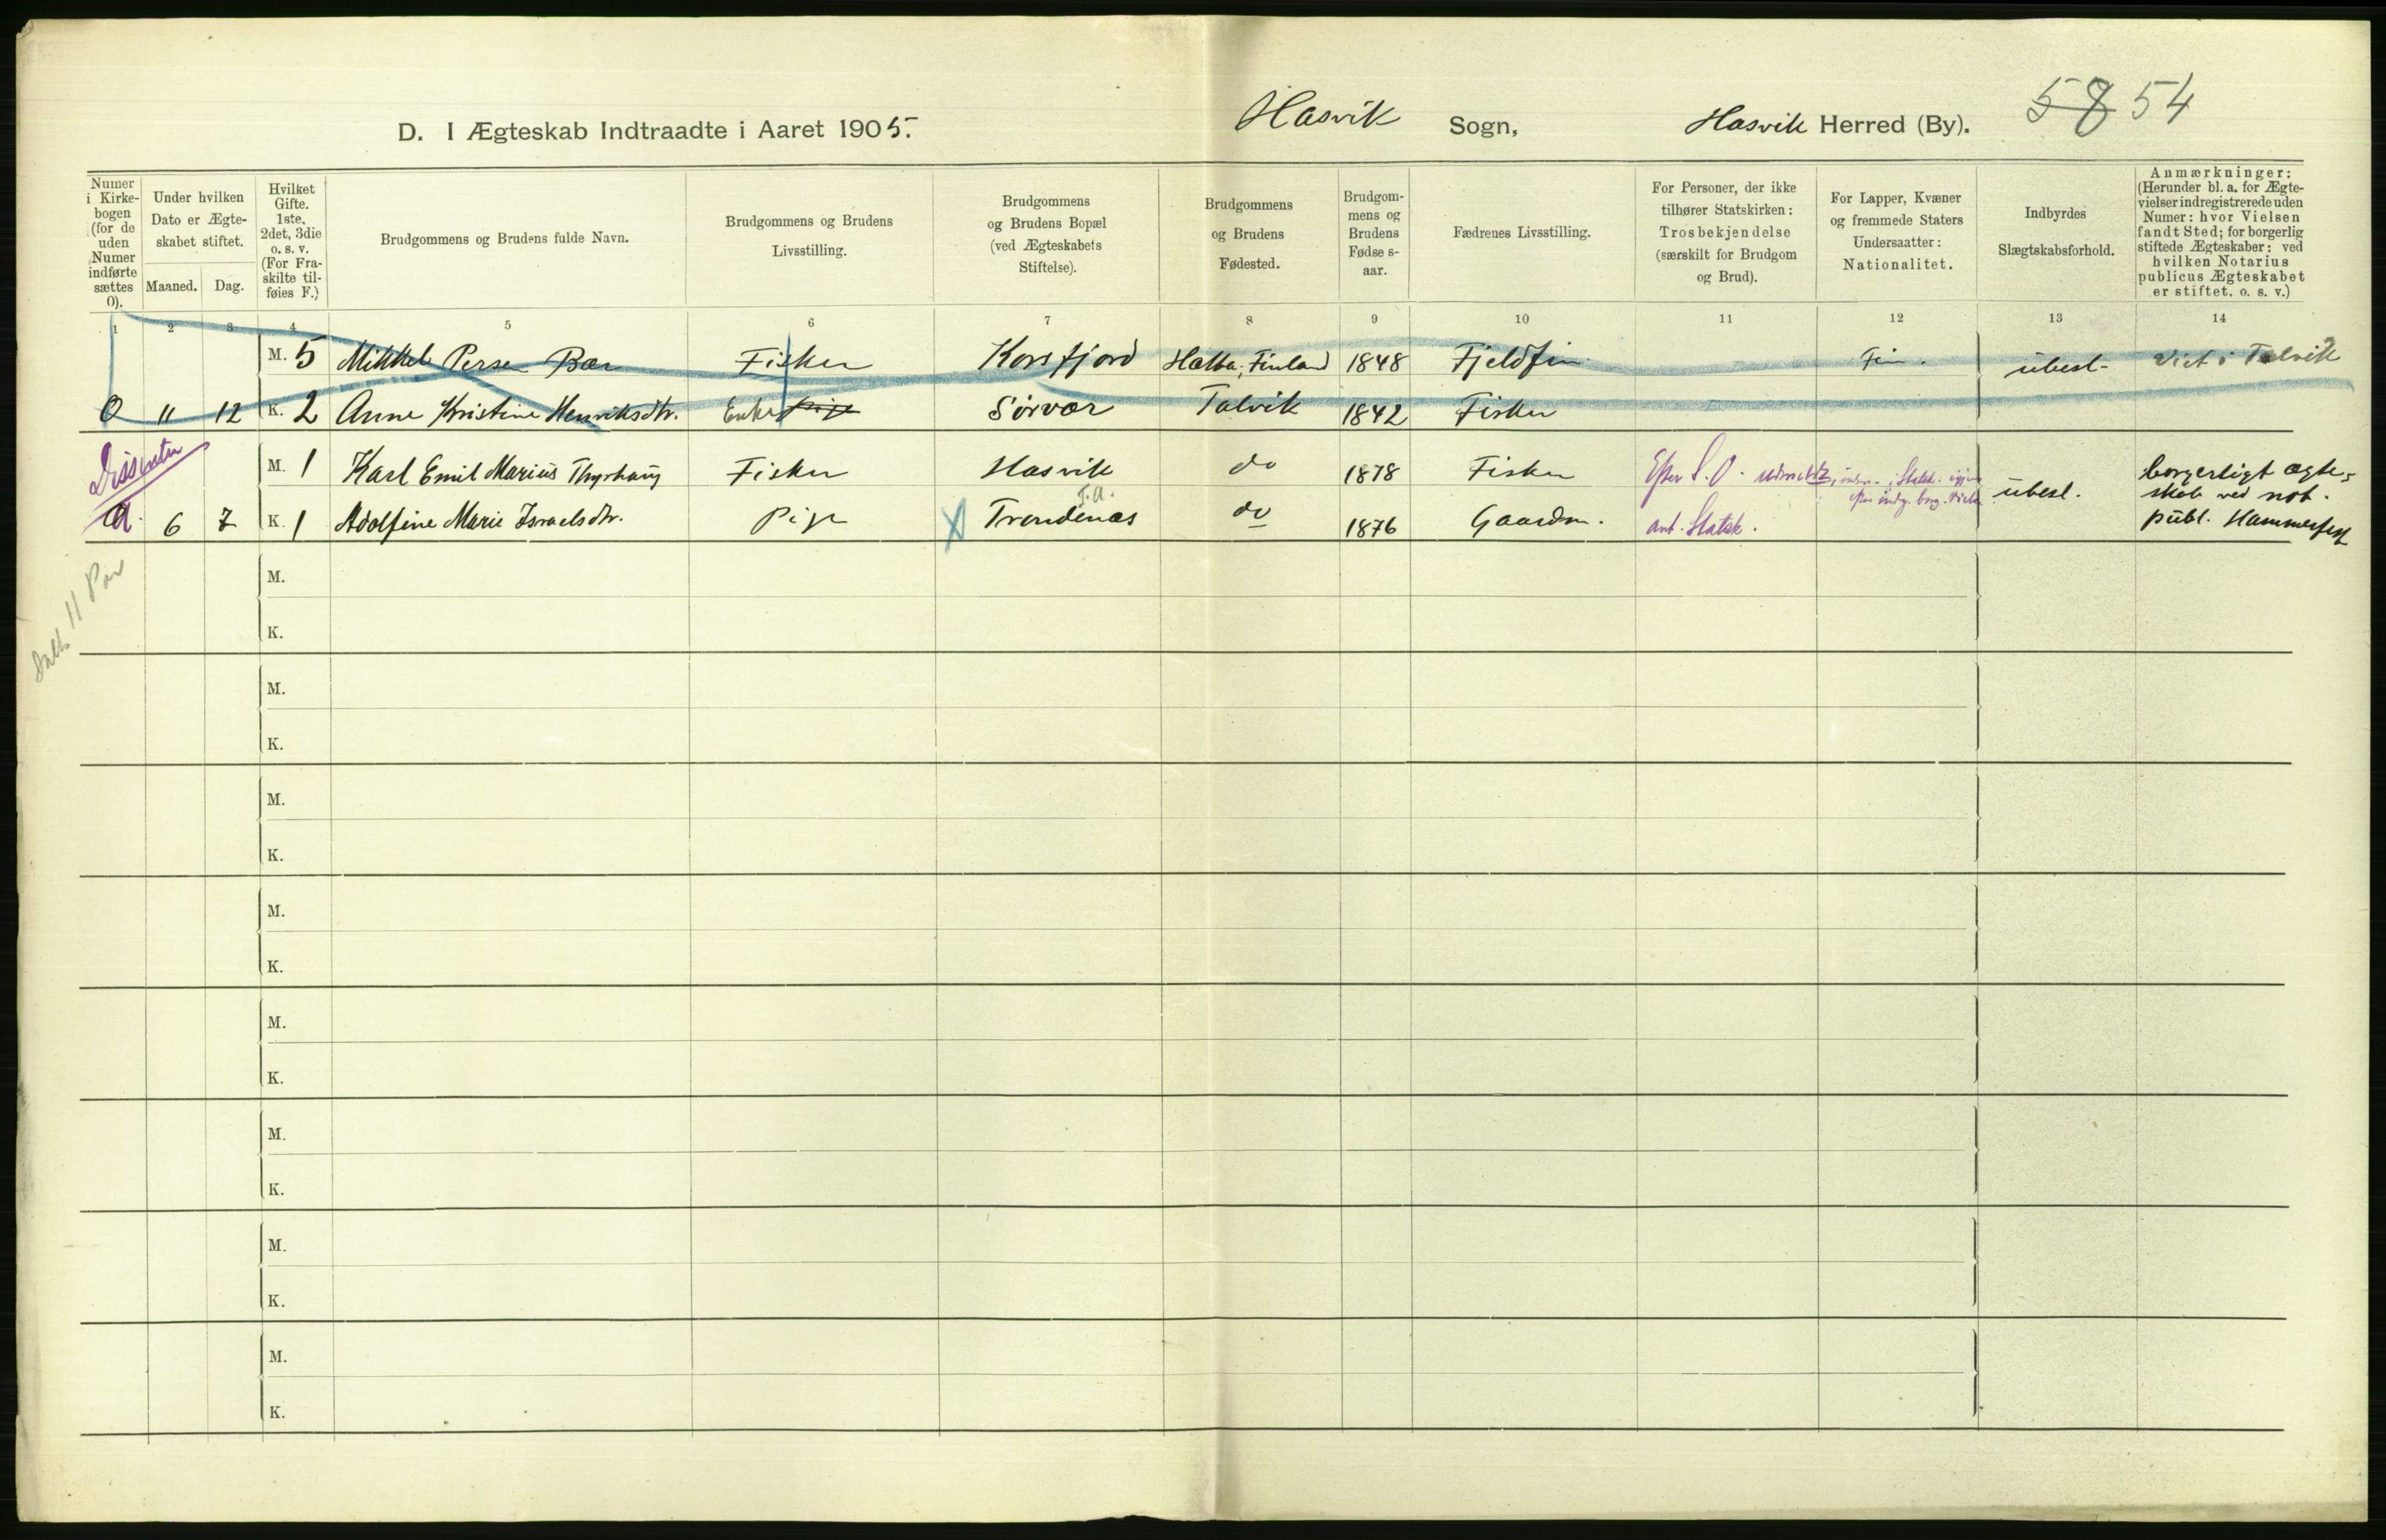 D. I Ægteskab Indtraadte i Aaret 1905.
Hasvik Sogn,
Hasvik Herred (By).
58 54
Numer i Kirkebogen (for de uden Numer indførte sættes 0).
Under hvilken Dato er Ægteskabet stiftet.
Maaned. Dag.
Hvilket Gifte. 1ste, 2det, 3die o. s. v. (For Fraskilte tilføies F.)
Brudgommens og Brudens fulde Navn.
Brudgommens og Brudens Livsstilling.
Brudgommens og Brudens Bopæl (ved Ægteskabets Stiftelse).
Brudgommens og Brudens Fødested.
Brudgommens og Brudens Fødselsaar.
Fædrenes Livsstilling.
For Personer, der ikke tilhører Statskirken: Trosbekjendelse (særskilt for Brudgom og Brud).
For Lapper, Kvæner og fremmede Staters Undersaatter: Nationalitet.
Indbyrdes Slægtskabsforhold.
Anmærkninger: (Herunder bl. a. for Ægtevielser indregistrerede uden Numer: hvor Vielsen fandt Sted; for borgerlig stiftede Ægteskaber: ved hvilken Notarius publicus Ægteskabet er stiftet, o. s. v.)
1 2 3 4 5 6 7 8 9 10 11 12 13 14
M. 5 Mikkel Persen Bær Fisker Korsfjord Halta, Finland 1848 Fjeldfin Fin. ubesl. Viet i Talvik
0 11 12 K. 2 Anne Kristine Henriksdtr. Enke Pige Sörvær Talvik 1842 Fisker
Dissenter
M. 1 Karl Emil Marius Thyrhaug Fisker Hasvik do 1878 Fisker ubesl. borgerligt ægte-
skab ved not.
6 7 K. 1 Adolfine Marie Israelsdtr. Pige X Trondenæs do 1876 Gaardm. ant. Statsk. publ. Hammerfest
11 Par
M.
K.
M.
K.
M.
K.
M.
K.
M.
K.
M.
K.
M.
K.
M.
K.